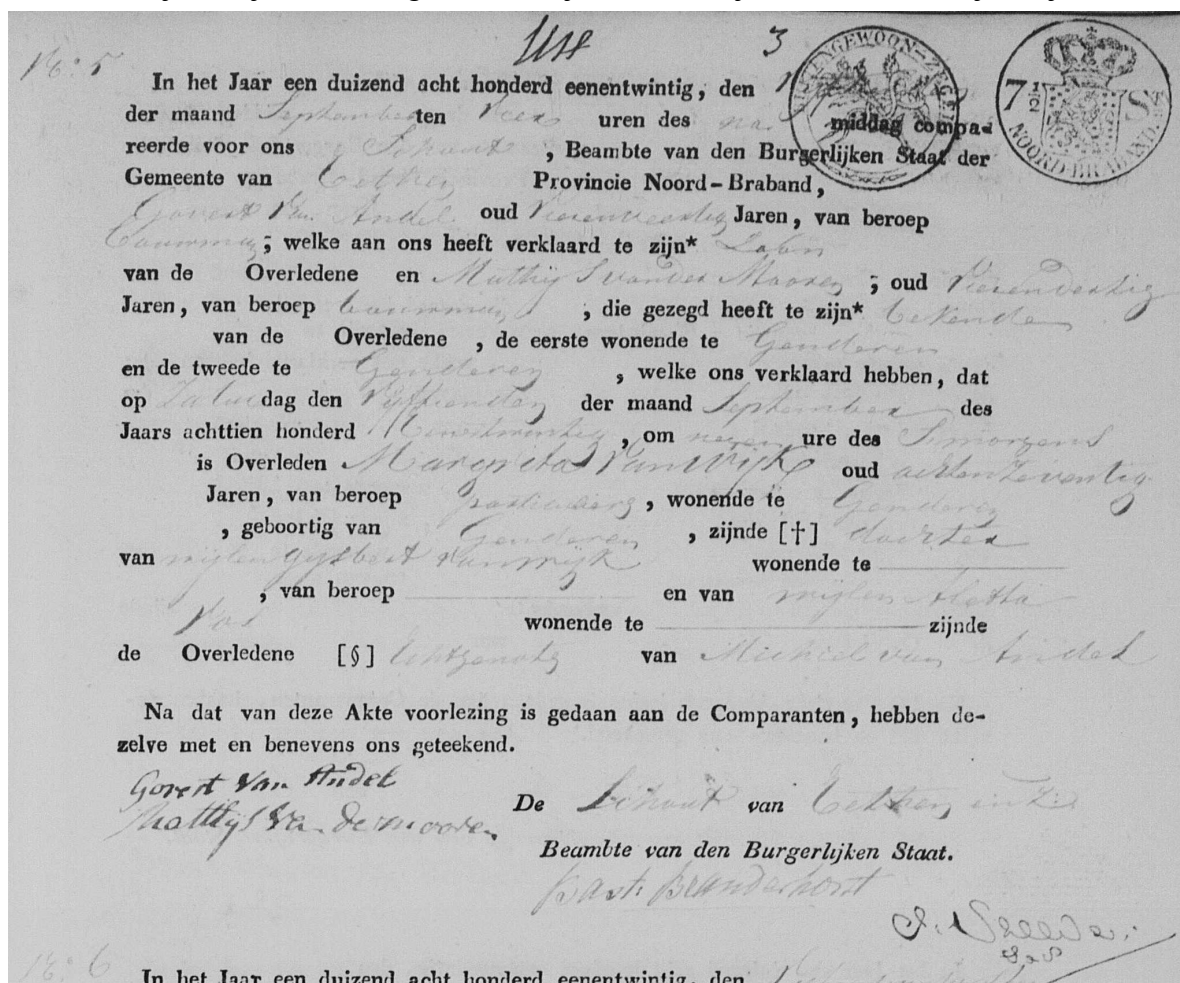 Nº: 5
3
GEWOON-ZEGEL
7 1/2 S
NOORD-BRABAND.
In het Jaar een duizend acht honderd eenentwintig, den
der maand September ten Vier uren des na middag compa-
reerde voor ons Schout , Beambte van den Burgerlijken Staat der
Gemeente van Eethen Provincie Noord-Braband,
Govert Van Andel oud Vierenveertig Jaren, van beroep
bouwman ; welke aan ons heeft verklaard te zijn* Zoon
van de Overledene en Mathijs van der Mooren ; oud Vierendertig
Jaren, van beroep bouwman , die gezegd heeft te zijn* bekende
van de Overledene , de eerste wonende te Genderen
en de tweede te Genderen , welke ons verklaard hebben, dat
op Zatur dag den Vijftienden der maand September des
Jaars achttien honderd Eenentwintig , om negen ure des Smorgens
is Overleden Margreta Van Wijk oud achtenzeventig
Jaren, van beroep , wonende te Genderen
, geboortig van Genderen , zijnde [†] dochter
van wijlen Gijsbert van Wijk wonende te
, van beroep en van wijlen Aletta
Vos wonende te zijnde
de Overledene [§] Echtgenote van Michiel van Andel
Na dat van deze Akte voorlezing is gedaan aan de Comparanten, hebben de-
zelve met en benevens ons geteekend.
Govert Van Andel
Matthijs Van Der mooren
De Schout van Eethen
Beambte van den Burgerlijken Staat.
Bast: Branderhorst
Nº: 6
In het Jaar een duizend acht honderd eenentwintig, den